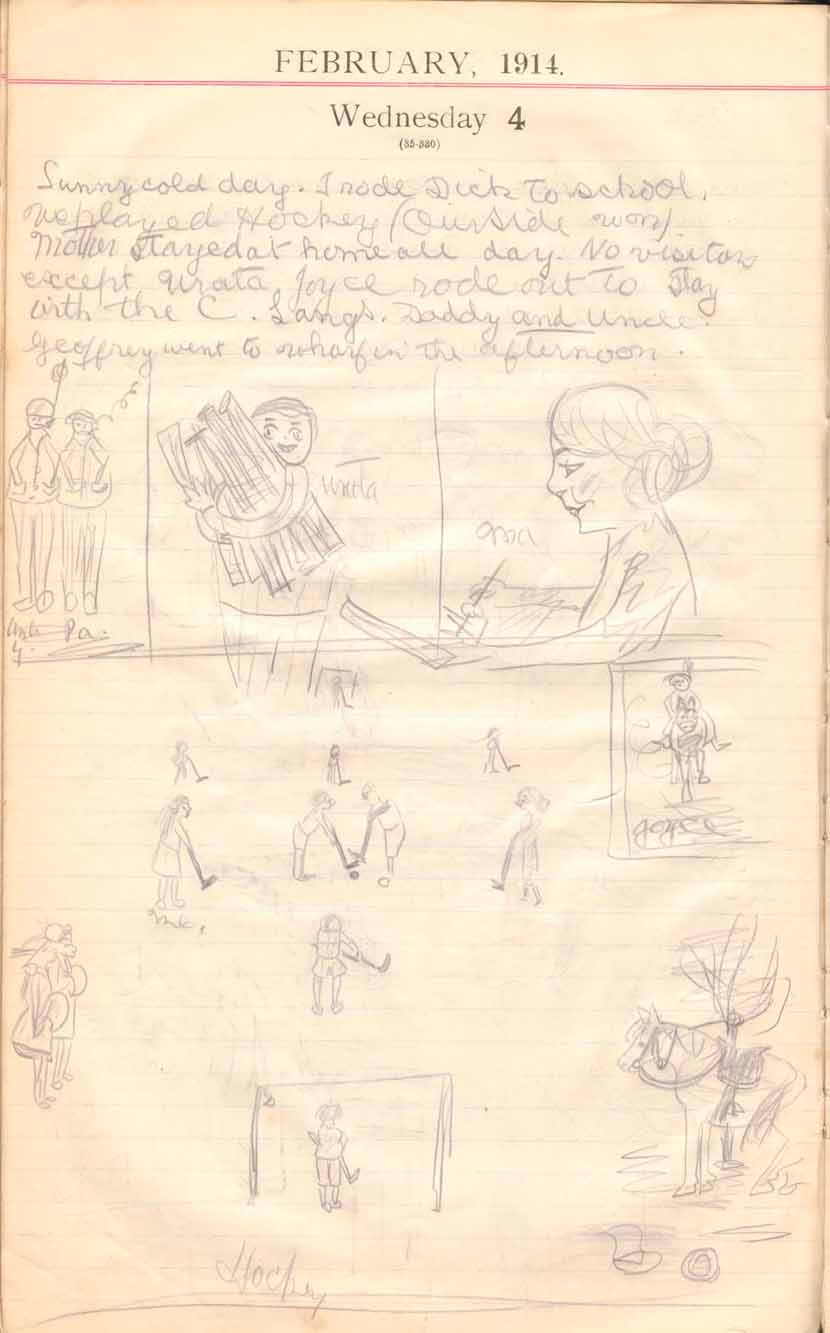 FEBRUARY, 1914.
Wednesday 4
(35-330)
Sunny cold day. I rode Dick to school.
We played Hockey (Outside won).
Mother stayed at home all day. No visitors
except Urata. Joyce rode out to stay
with the C. Langs. Daddy and Uncle.
Geoffrey went to wharf in the afternoon.
Urata
Ma
Unk Pa.
G.
Joyce
me,
Hockey